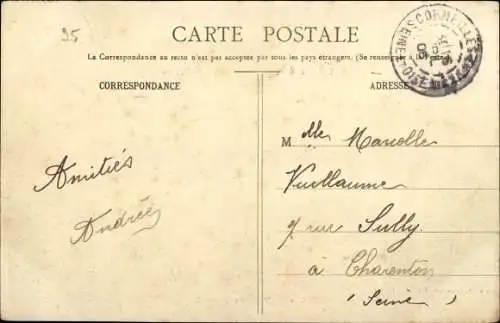 95
CARTE POSTALE
La Correspondance au recto n'est pas acceptée par tous les pays étrangers. (Se renseigner à la Poste)
CORRESPONDANCE
ADRESSE
CORMEILLES
SEINE-ET-OISE
Mlle Marcelle
Vuillaume
rue Sully
à Charenton
(Seine)
Amitiés
Andrée